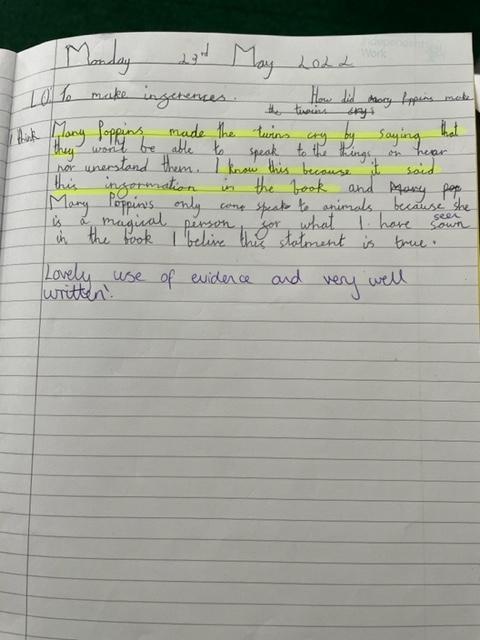 Independent Work
Monday 23rd May 2022
LO: To make inferences. How did Mary Poppins make
the twins cry?
I think Mary Poppins made the twins cry by saying that
they won't be able to speak to the things or hear
nor unerstand them. I know this because it said
this information in the book and Mary pop
Mary Poppins only can speak to animals because she
is a magical person for what I have seen sown
in the book I belive this statment is true.
Lovely use of evidence and very well
written!